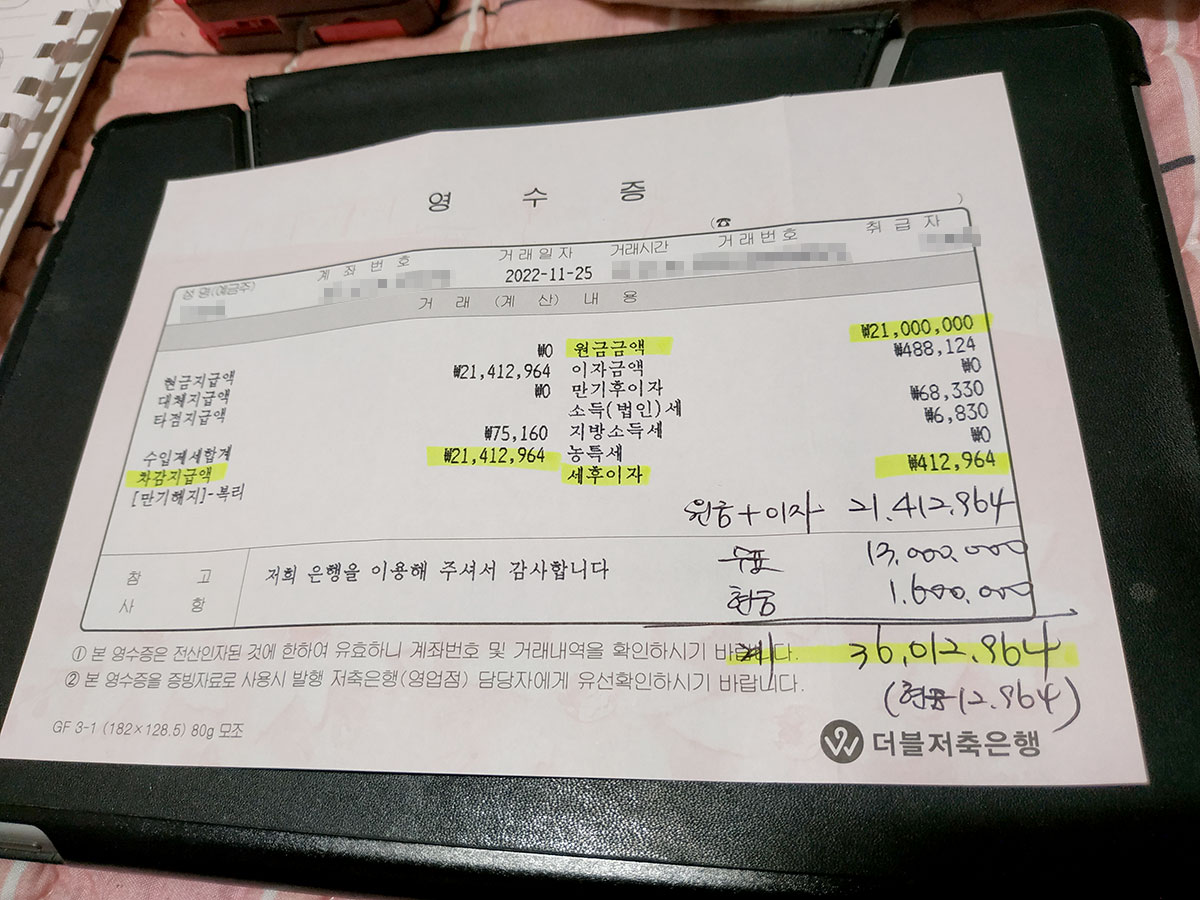 영 수 증
(☎ )
성 명(예금주) 계 좌 번 호 거 래 일 자 거래시간 거 래 번 호 취 급 자
2022-11-25
거 래 (계 산) 내 용
현금지급액 ₩0 원금금액 ₩21,000,000
대체지급액 ₩21,412,964 이자금액 ₩488,124
타점지급액 ₩0 만기후이자 ₩0
소득(법인)세 ₩68,330
수입제세합계 ₩75,160 지방소득세 ₩6,830
차감지급액 ₩21,412,964 농특세 ₩0
[만기해지]-복리 세후이자 ₩412,964
원금+이자 21.412.964
참 고 사 항
저희 은행을 이용해 주셔서 감사합니다
수표 13,000.000
현금 1.600.000
계 36,012.964
(현금 12.964)
① 본 영수증은 전산인자된 것에 한하여 유효하니 계좌번호 및 거래내역을 확인하시기 바랍니다.
② 본 영수증을 증빙자료로 사용시 발행 저축은행(영업점) 담당자에게 유선확인하시기 바랍니다.
GF 3-1 (182×128.5) 80g 모조
더블저축은행